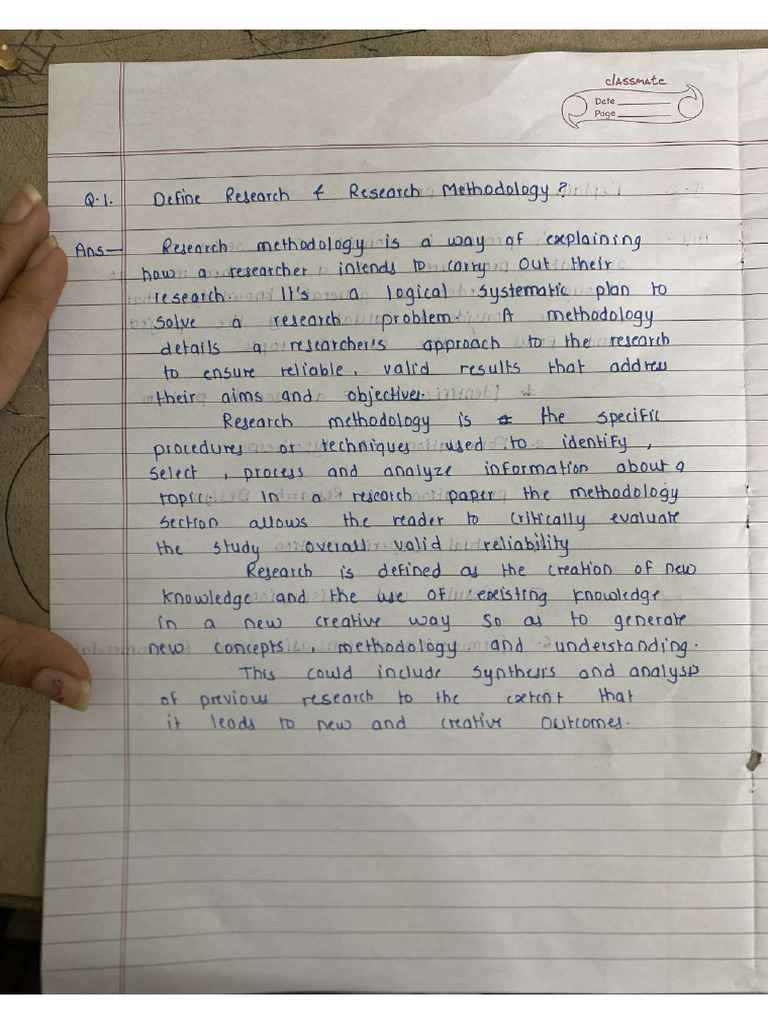 classmate
Date
Page
Q.1. Define Research & Research Methodology?
Ans— Research methodology is a way of explaining
how a researcher intends to carry out their
research. It's a logical systematic plan to
solve a research problem. A methodology
details a researcher's approach to the research
to ensure reliable, valid results that address
their aims and objectives.
Research methodology is the specific
procedures or techniques used to identify,
select, process and analyze information about a
topic. In a research paper the methodology
section allows the reader to critically evaluate
the study overall valid reliability
Research is defined as the creation of new
knowledge and the use of existing knowledge
in a new creative way so as to generate
new concepts, methodology and understanding.
This could include synthesis and analysis
of previous research to the extent that
it leads to new and creative outcomes.